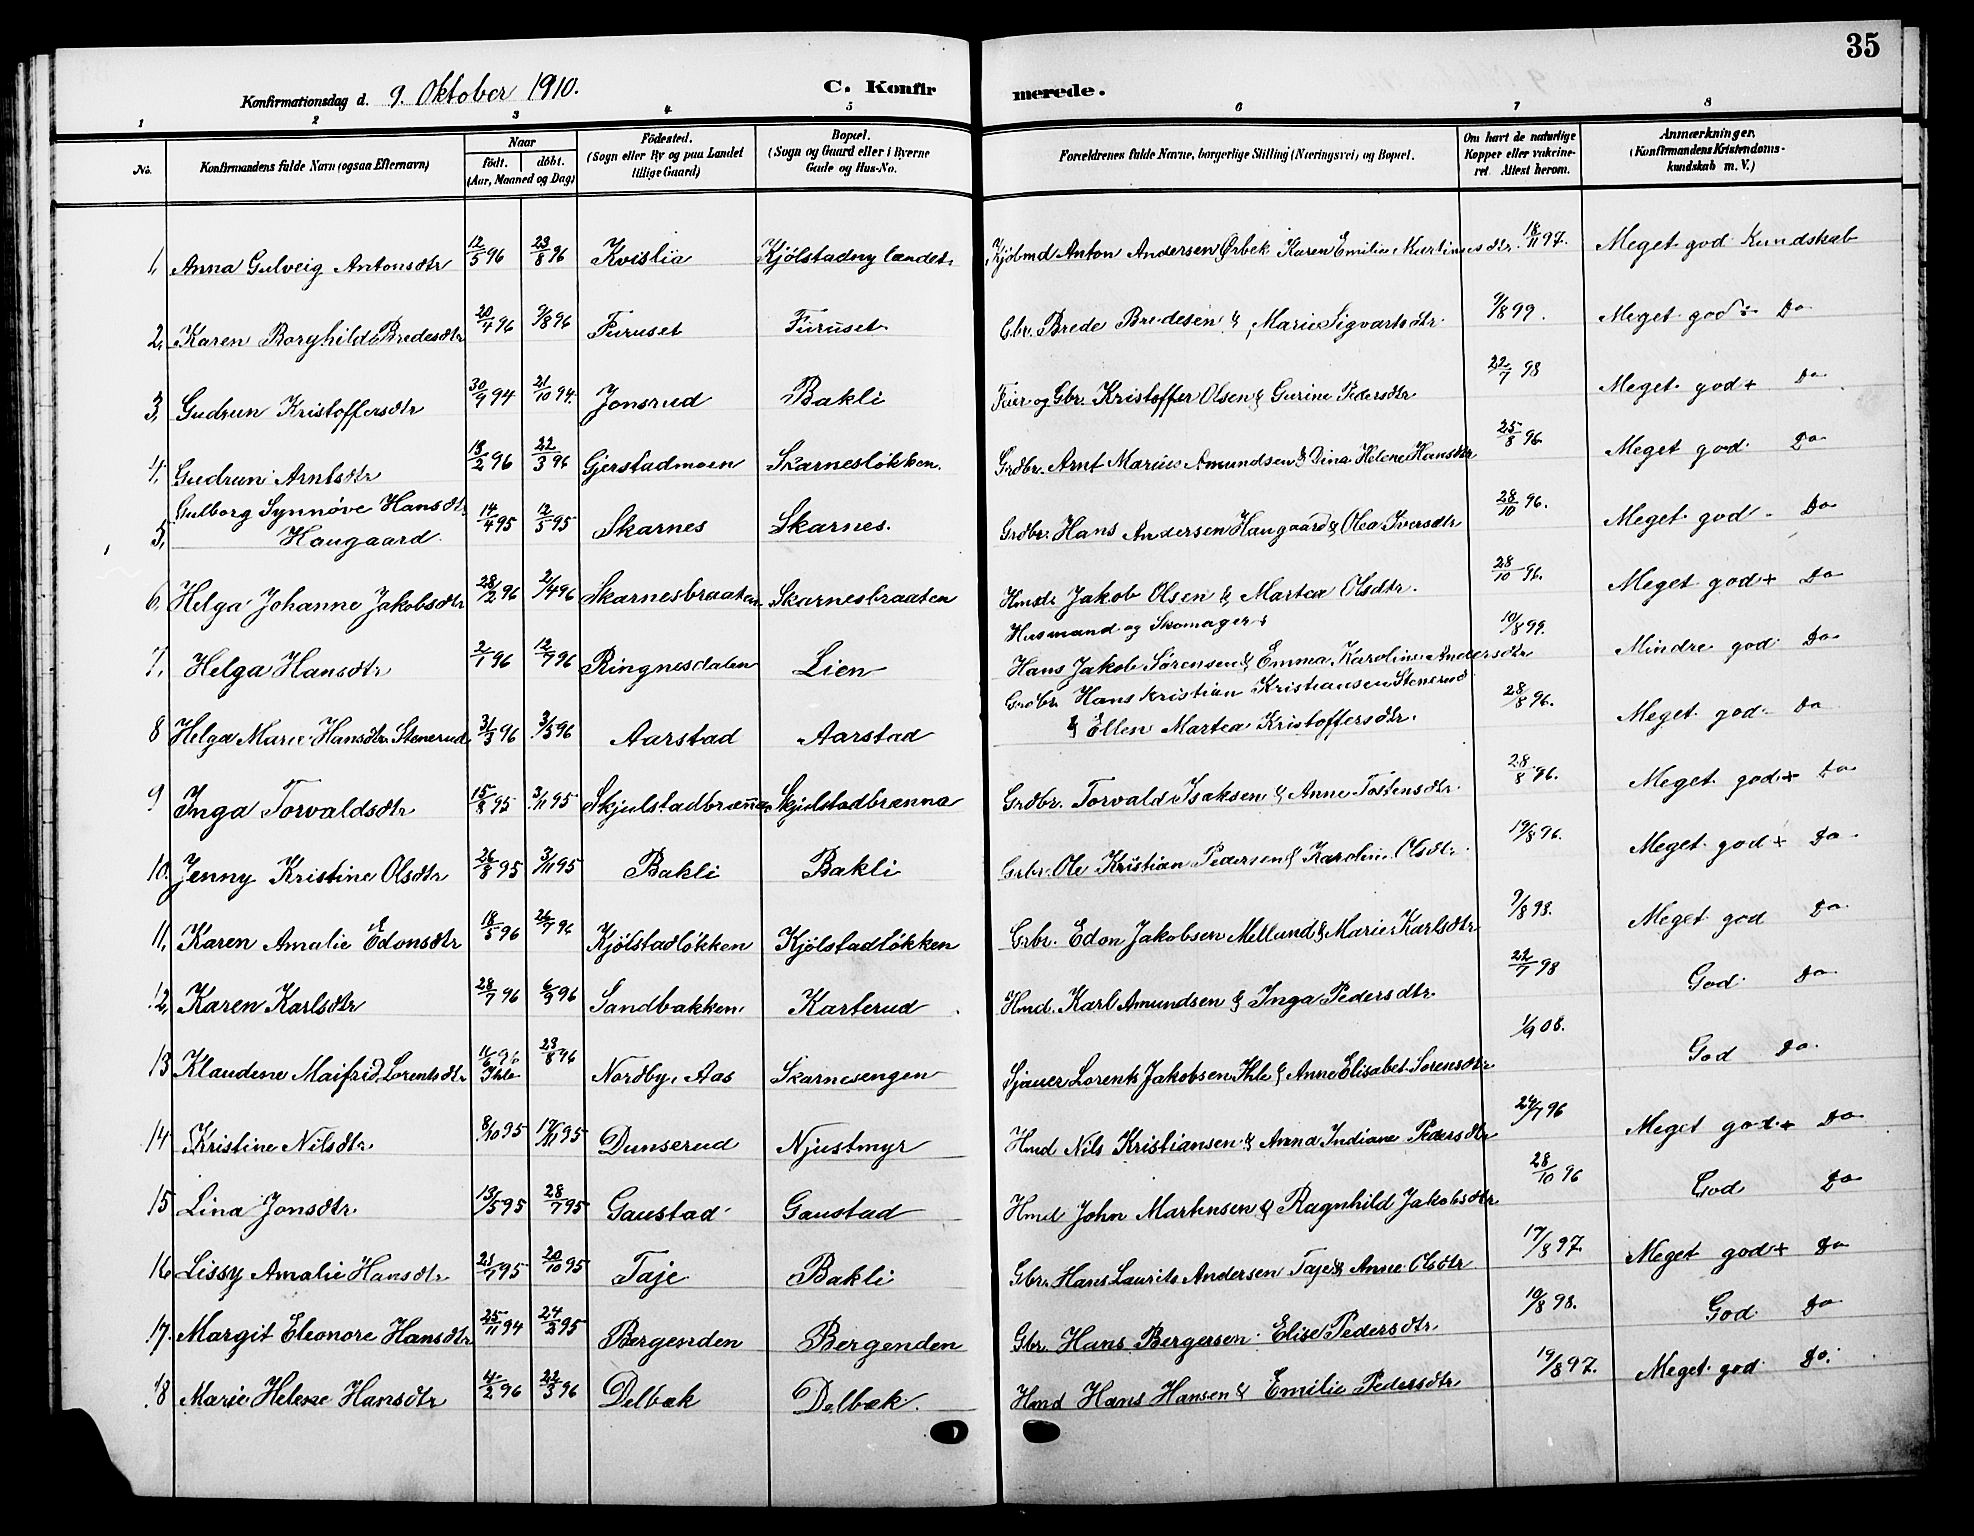 35
Konfirmationsdag d. 9. Oktober 1910. C. Konfirmerede.
1 2 3 4 5 6 7 8
No. Konfirmandens fulde Navn (ogsaa Efternavn) Naar födt. döbt. (Aar, Maaned og Dag) Födested. (Sogn eller By og paa Landet tillige Gaard) Bopæl. (Sogn og Gaard eller i Byerne Gade og Hus-No. Forældrenes fulde Navne, borgerlige Stilling (Næringsvei) og Bopæl. Om havt de naturlige Kopper eller vakcineret Attest herom. Anmærkninger. (Konfirmandens Kristendomskundskab m. V.)
1, Anna Gulveig Antonsdtr 12/5 96 23/8 96 Kvislia Kjölstadnylændet. Kjöbmd Anton Andersen Ørbek Karen Emilie Martinusdtr. 18/11 97. Meget god Kundskab
2, Karen Borghild Bredesdtr 20/4 96 9/8 96 Furuset Furuset Gbr. Brede Bredesen & Marie Sigvartsdtr. 9/8 99. Meget god ÷ Do
3, Gudrun Kristoffersdtr 30/9 94 21/10 94. Jonsrud Bakli Feier og Gbr. Kristoffer Olsen & Gurine Pedersdtr 22/7 98 Meget god + Do
4, Gudrun Arntsdtr 18/2 96 22/3 96 Gjerstadmoen Skarneslökken. Grdbr. Arnt Marius Amundsen & Dina Helene Hansdtr 25/8 96. Meget god Do
5, Gulborg Synnöve Hansdtr Haugaard 14/4 95 12/5 95 Skarnes Skarnes. Grdbr. Hans Andersen Haugaard & Olea Iversdtr 28/10 96. Meget god - Do
6, Helga Johanne Jakobsdtr 28/2 96 2/4 96 Skarnesbraaten Skarnesbraaten Hmd. Jakob Olsen & Martea Olsdtr. 28/10 96. Meget god + Do
7, Helga Hansdtr 2/1 96 12/7 96 Ringnesdalen Lien Husmand og Skomager Hans Jakob Sörensen & Emma Karoline Andersdtr 10/8 99. Mindre god Do
8 Helga Marie Hansdtr. Stenerud 31/3 96 3/5 96 Aarstad Aarstad Grdbr Hans Kristian Kristiansen Stenerud & Ellen Martea Kristoffersdtr. 28/8 96. Meget god - Do
9 Inga Torvaldsdtr 15/8 95 3/11 95 Skjulstadbrænna Skjulstadbrænna Grdbr. Torvald Isaksen & Anne Tostensdtr. 28/8 96. Meget god + Do
10. Jenny Kristine Olsdtr 26/8 95 3/11 95 Bakli Bakli Grbr. Ole Kristian Pedersen & Karoline Olsdtr. 19/8 96. Meget god + Do
11, Karen Amalie Edonsdtr 18/5 96 26/7 96 Kjölstadlökken Kjölstadlökken Grbr. Edon Jakobsen Mellund & Marie Karlsdtr 9/8 98. Meget god Do
12, Karen Karlsdtr 28/7 96 6/9 96 Sandbakken. Karterud Hmd. Karl Amundsen & Inga Pedersdtr. 22/7 98 God Do
13 Klaudene Maifrid Lorentsdtr Ihle 11/6 96 23/8 96 Nordby, Aas Skarnesengen Sjauer Lorents Jakobsen Ihle & Anne Elisabet Sörensdtr 1/9 08. God Do
14 Kristine Nilsdtr. 8/10 95 17/11 95 Dunserud Njustmyr Hmd Nils Kristiansen & Anna Indiane Pedersdtr 24/7 96 Meget god + Do
15 Lina Jonsdtr. 13/5 95 28/7 95 Gaustad Gaustad Hmd John Martinsen & Ragnhild Jakobsdtr 28/10 96 God Do
16 Lissy Amalie Hansdtr 21/7 95 20/10 95 Taje Bakli Gbr. Hans Laurits Andersen Taje & Anne Olsdtr 17/8 97. Meget god + Do
17. Margit Eleonore Hansdtr 25/11 94 24/3 95 Bergenden Bergenden Gbr. Hans Bergersen Elise Pedersdtr. 10/8 98. God Do
18 Marie Helene Hansdtr 4/2 96 22/3 96 Delbæk Delbæk. Hmd Hans Hansen & Emilie Pedersdtr 19/8 97. Meget god Do.